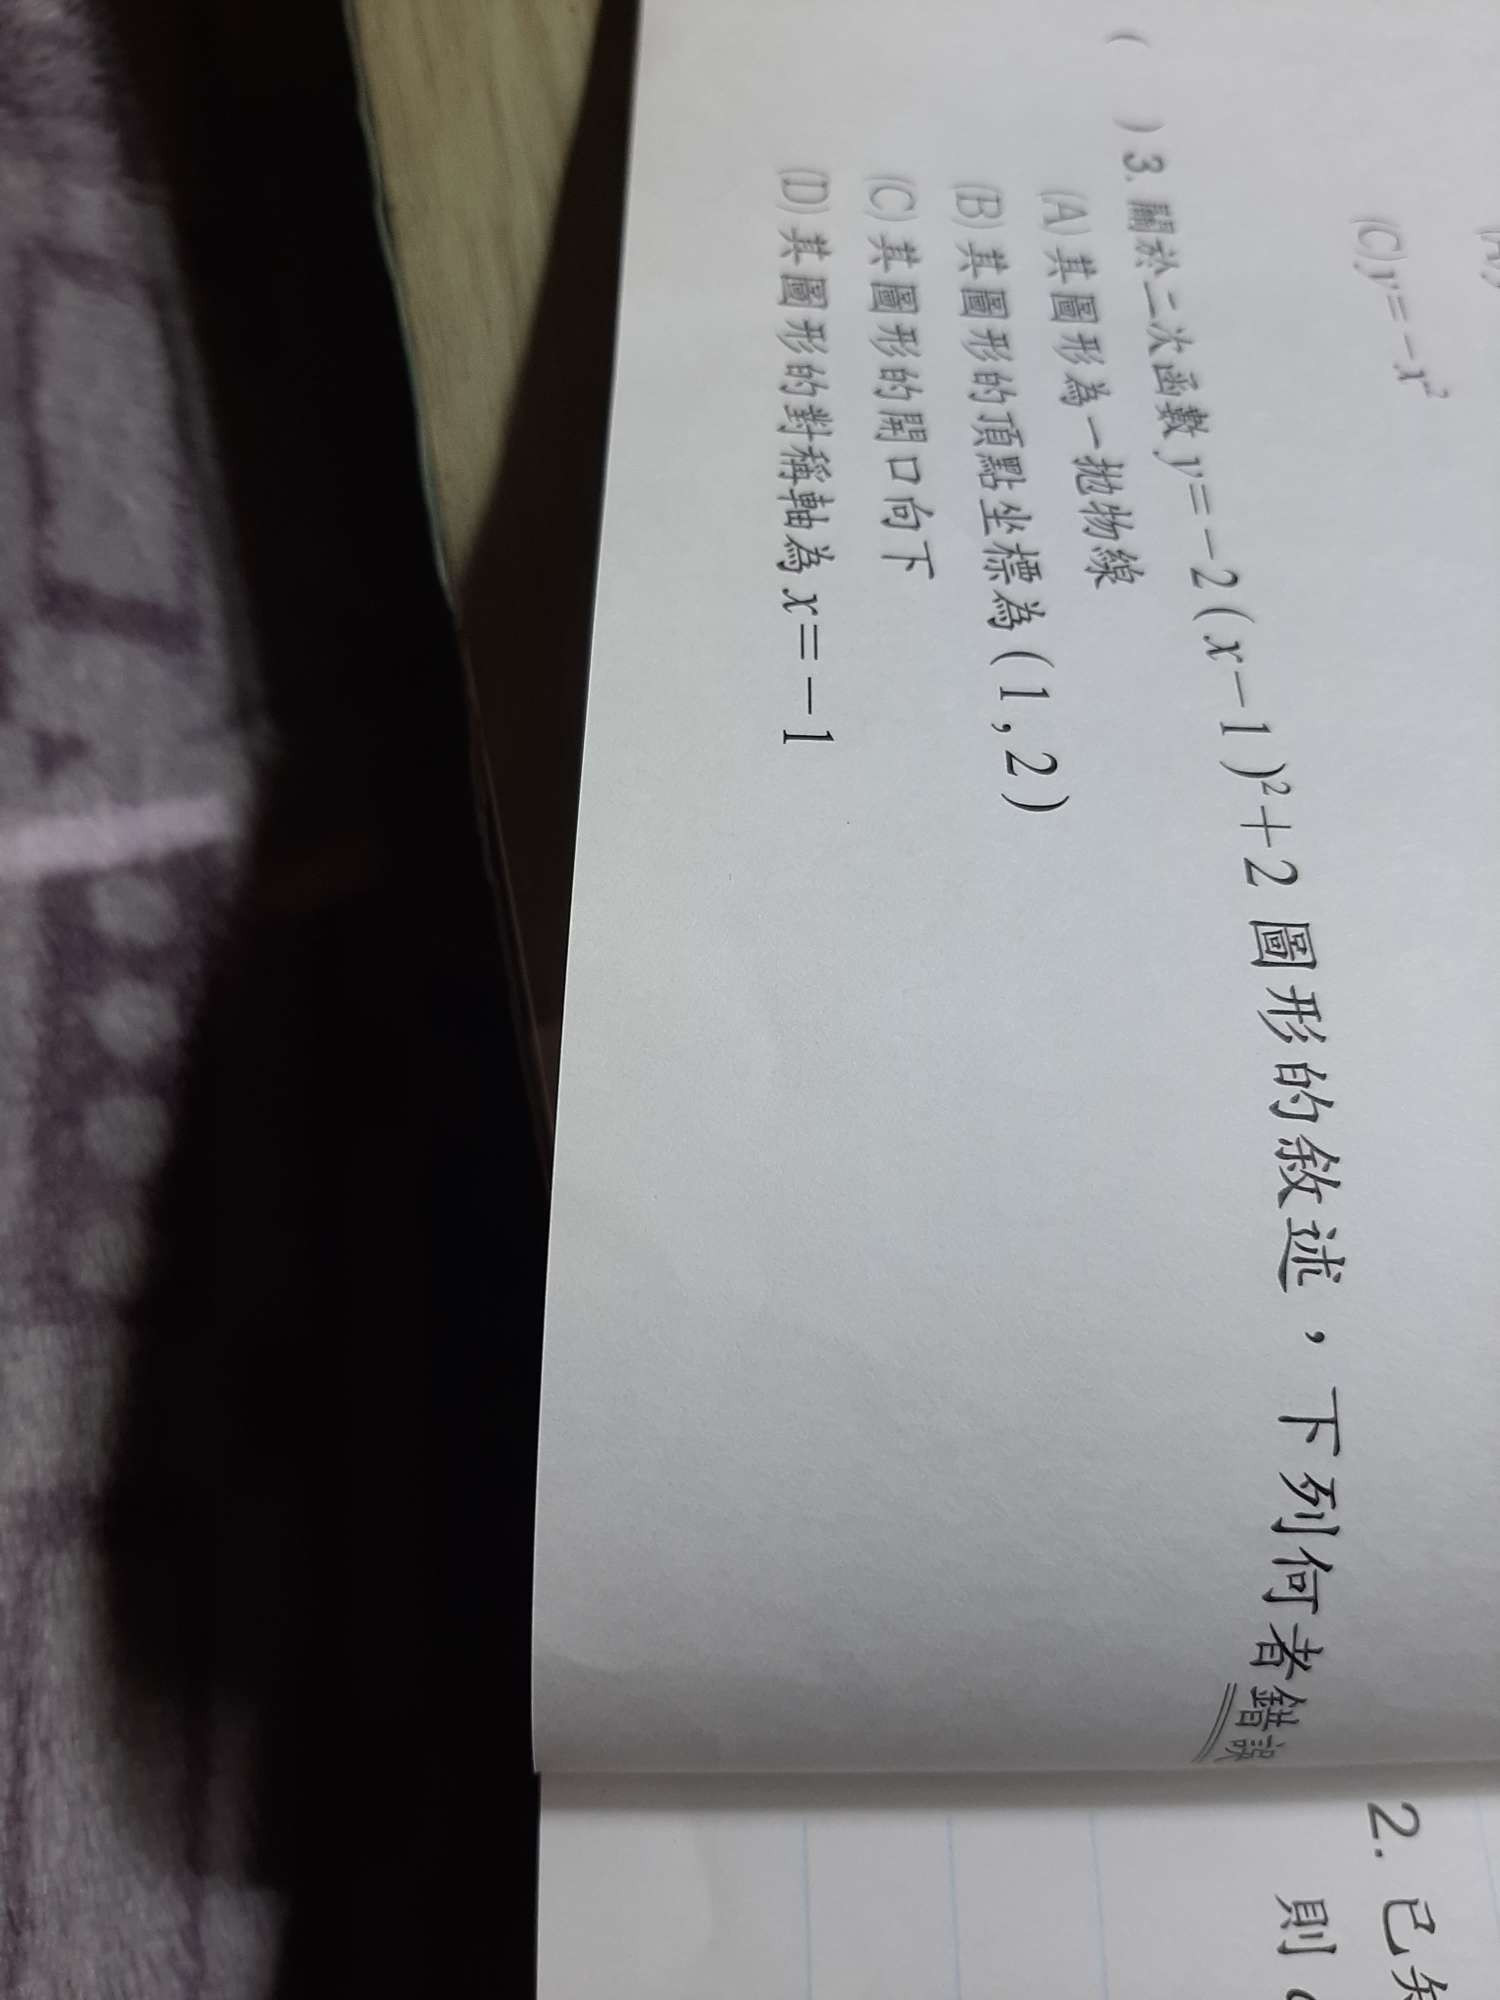 (C) y=-x²
( ) 3. 關於二次函數 y=-2(x-1)²+2 圖形的敘述，下列何者錯誤
(A) 其圖形為一拋物線
(B) 其圖形的頂點坐標為 (1, 2)
(C) 其圖形的開口向下
(D) 其圖形的對稱軸為 x=-1
2. 已知
則